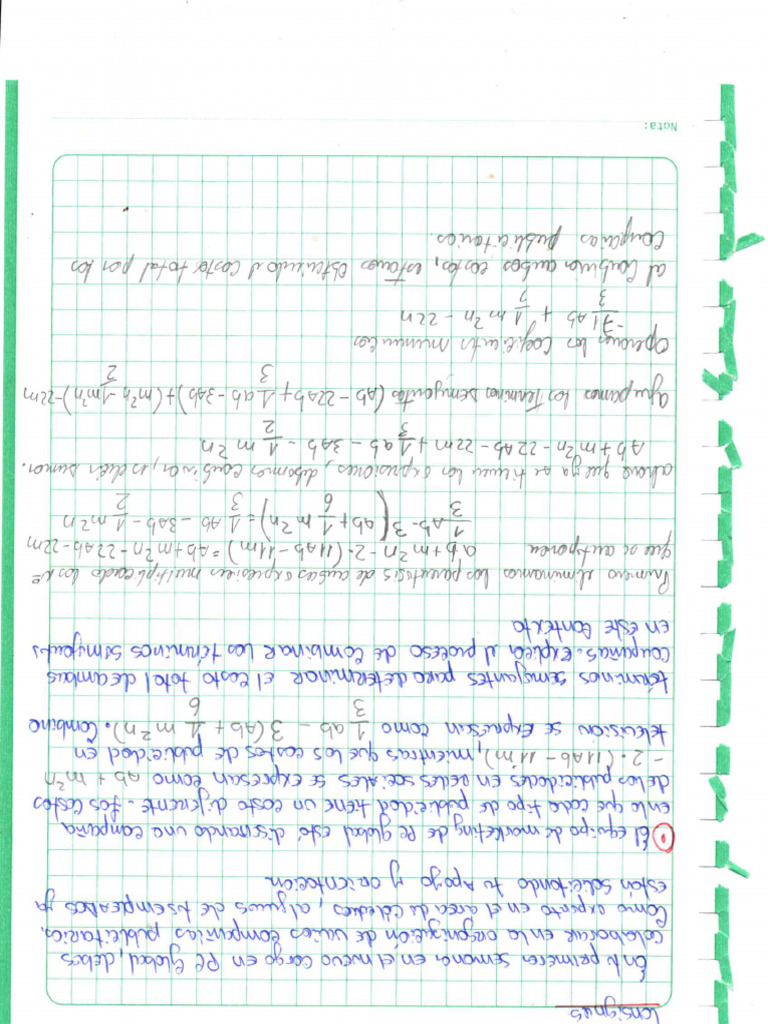 Consignas
En la primera semana en el nuevo cargo en RE Global, debes
colaborar en la organización de varias compañías publicitarias.
Como experto en el area de cálculos, algunos de tus empleados ya
están solicitando tu apoyo y orientación.
El equipo de marketing de RE global está diseñando una campaña
en la que cada tipo de publicidad tiene un costo diferente. Los costos
de las publicidades en redes sociales se expresan como ab + m²n
- 2 · (11ab - 11m), mientras que los costos de publicidad en
televisión se expresan como 1/3 ab - 3 (ab + 1/6 m²n). Combina
términos semejantes para determinar el costo total de ambas
campañas. Explica el proceso de combinar los términos semejantes
en este contexto
Primero eliminamos los parentesis de ambas expresiones multiplicado los N°
que se
ab + m²n - 2 · (11Ab - 11m) = ab + m²n - 22 - 22Ab - 22m
1/3 Ab - 3 (ab + 1/6 m²n) = 1/3 Ab - 3ab - 1/2 m²n
ahora que ya se tienen las expresiones, debemos combinar, es decir sumar.
Ab + m²n - 22 - 22Ab - 22m + 1/3 ab - 3Ab - 1/2 m²n
agrupamos los terminos semejantes (Ab - 22Ab + 1/3 ab - 3Ab) + (m²n - 1/2 m²n) - 22m
operamos los coeficientes numericos
-71/3 Ab + 1/2 m²n - 22n
al combinar ambos costos, estamos obteniendo el costo total por las
Campañas publicitarias.
Nota: